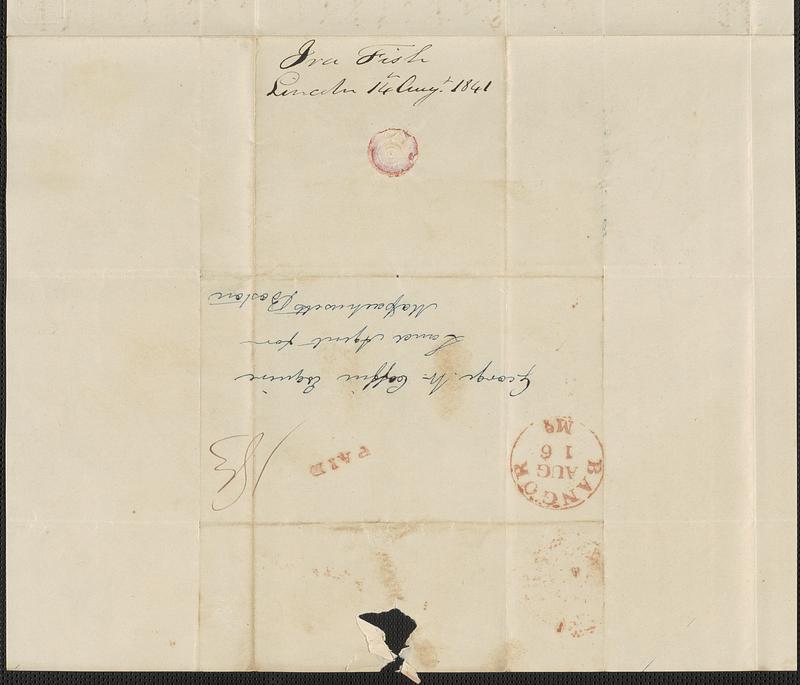 Ira Fish
Lincoln 14 Augt. 1841
George W. Coffin Esquire
Land Agent for
Massachusetts Boston
PAID
18¾
BANGOR
AUG
16
Me